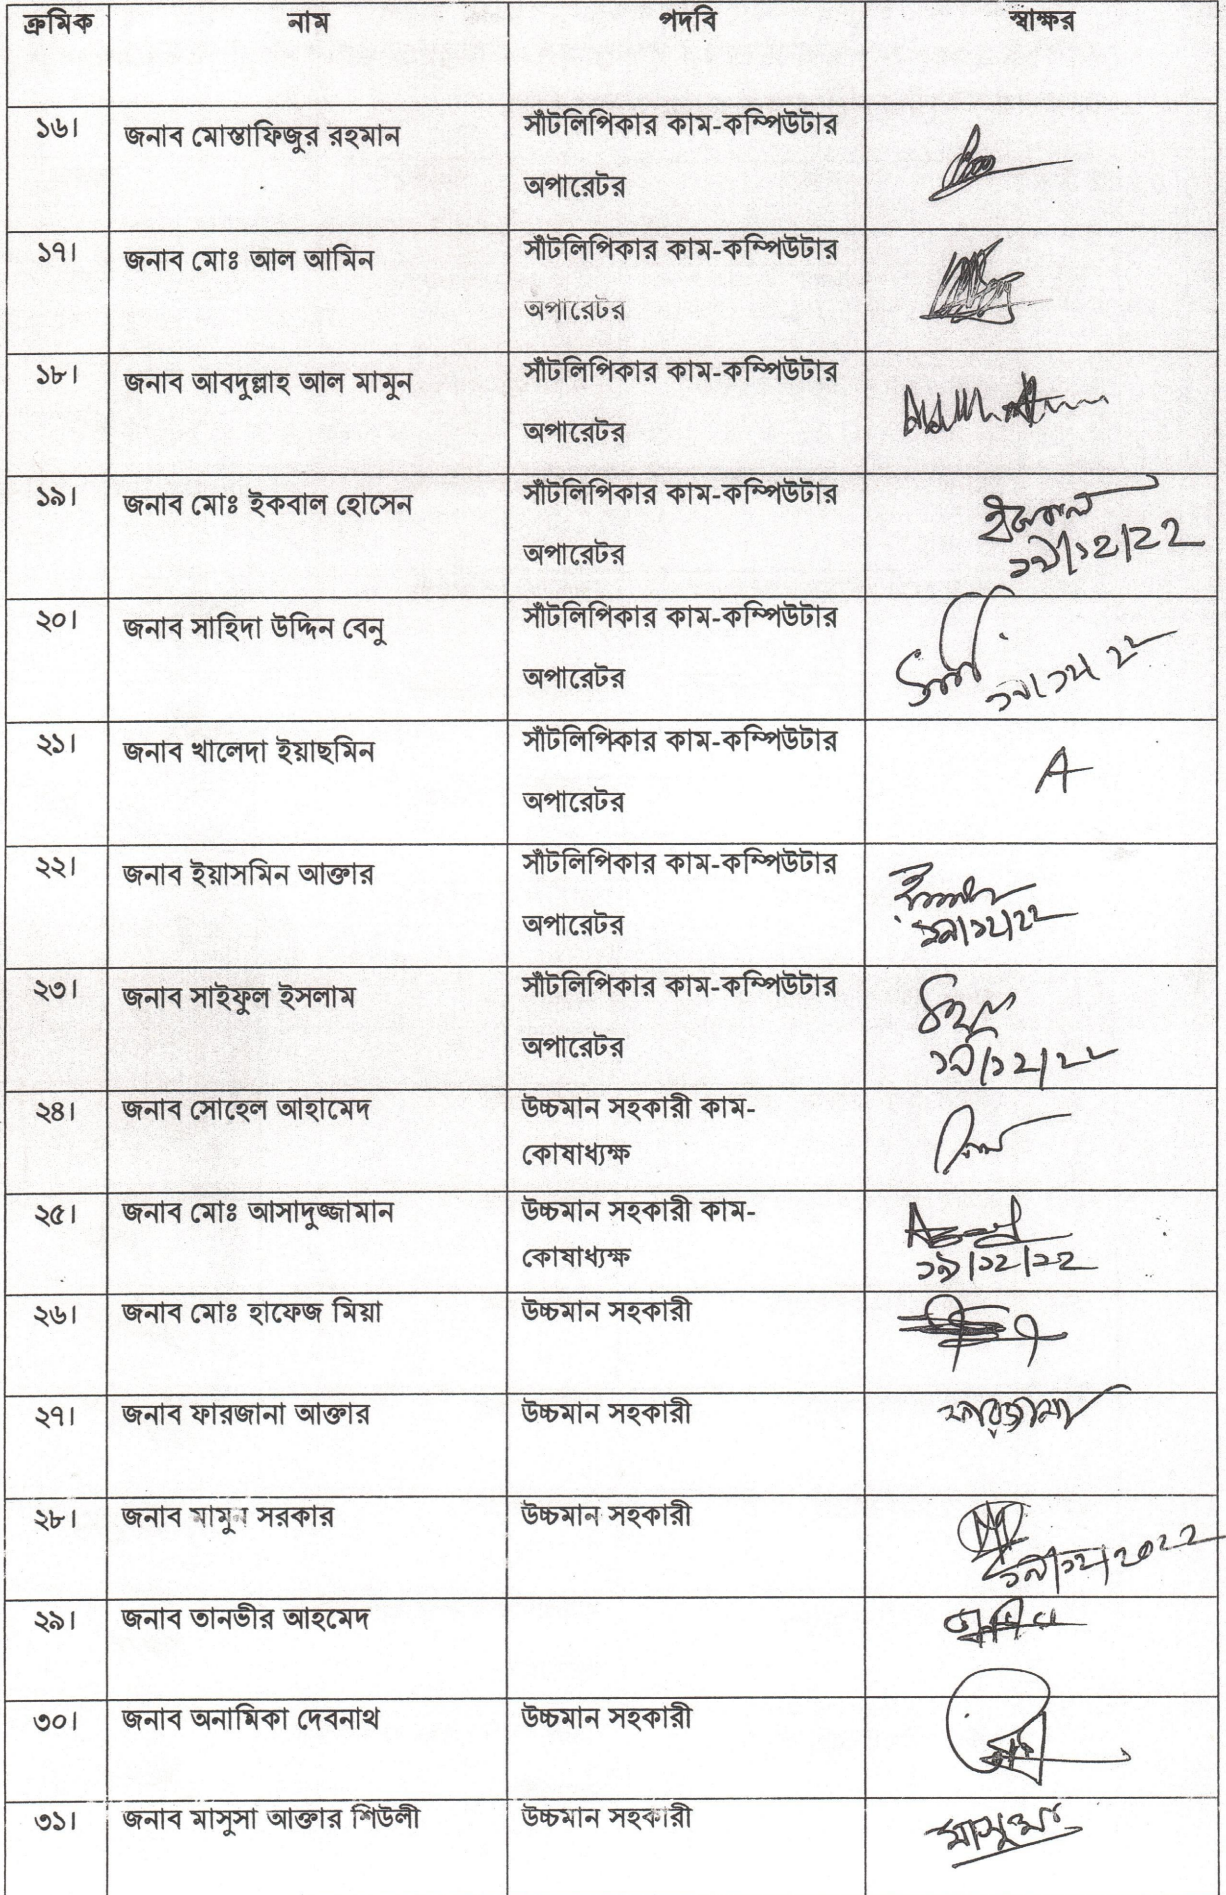 ক্রমিক নাম পদবি স্বাক্ষর
১৬। জনাব মোস্তাফিজুর রহমান সাঁটলিপিকার কাম-কম্পিউটার
অপারেটর
১৭। জনাব মোঃ আল আমিন সাঁটলিপিকার কাম-কম্পিউটার
অপারেটর
১৮। জনাব আবদুল্লাহ আল মামুন সাঁটলিপিকার কাম-কম্পিউটার
অপারেটর
১৯। জনাব মোঃ ইকবাল হোসেন সাঁটলিপিকার কাম-কম্পিউটার
ইকবাল
অপারেটর
১৯/১২/২২
২০। জনাব সাহিদা উদ্দিন বেনু সাঁটলিপিকার কাম-কম্পিউটার
অপারেটর ১৯/১২/২২
২১। জনাব খালেদা ইয়াছমিন সাঁটলিপিকার কাম-কম্পিউটার
A
অপারেটর
২২। জনাব ইয়াসমিন আক্তার সাঁটলিপিকার কাম-কম্পিউটার
অপারেটর ১৯/১২/২২
২৩। জনাব সাইফুল ইসলাম সাঁটলিপিকার কাম-কম্পিউটার
অপারেটর ১৯/১২/২২
২৪। জনাব সোহেল আহামেদ উচ্চমান সহকারী কাম-
কোষাধ্যক্ষ
২৫। জনাব মোঃ আসাদুজ্জামান উচ্চমান সহকারী কাম-
কোষাধ্যক্ষ ১৯/১২/২২
২৬। জনাব মোঃ হাফেজ মিয়া উচ্চমান সহকারী
২৭। জনাব ফারজানা আক্তার উচ্চমান সহকারী ফারজানা
২৮। জনাব মামুন সরকার উচ্চমান সহকারী
১৯/১২/২০২২
২৯। জনাব তানভীর আহমেদ
৩০। জনাব অনামিকা দেবনাথ উচ্চমান সহকারী
৩১। জনাব মাসুসা আক্তার শিউলী উচ্চমান সহকারী
মাসুমা